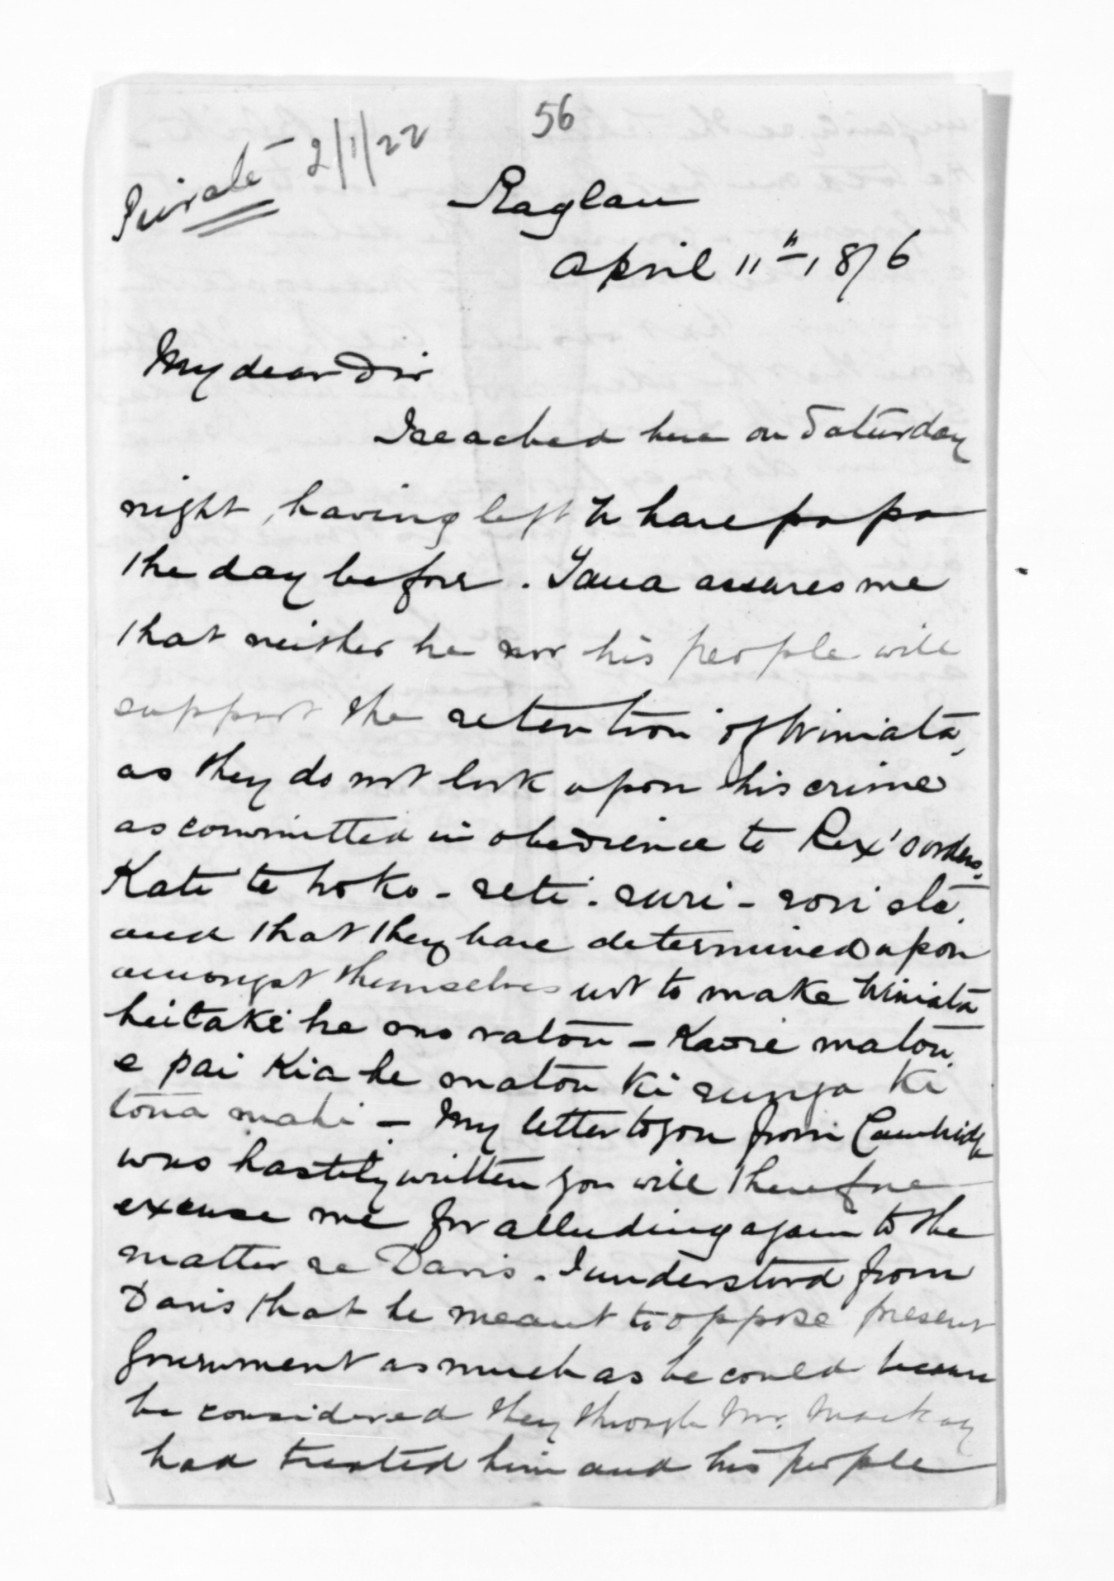 56
Private 2/1/22
Raglan
April 11th 1876
My dear Sir
I reached here on Saturday
night, having left Wharepapa
the day before. Taua assures me
that neither he nor his people will
support the retention of Winiata,
as they do not look upon his crime
as committed in obedience to Rex' orders,
Kati te hoko - reti - ruri - rori etc.
and that they have determined upon
amongst themselves not to make Winiata
hei take he mo ratou - Kaore matou
e pai kia he matou ki runga ki
tona mahi - My letter to you from Cambridge
was hastily written you will therefore
excuse me for alluding again to the
matter re Davis. I understood from
Davis that he meant to oppose present
Government as much as he could because
he considered they through Mr. Mackay
had treated him and his people